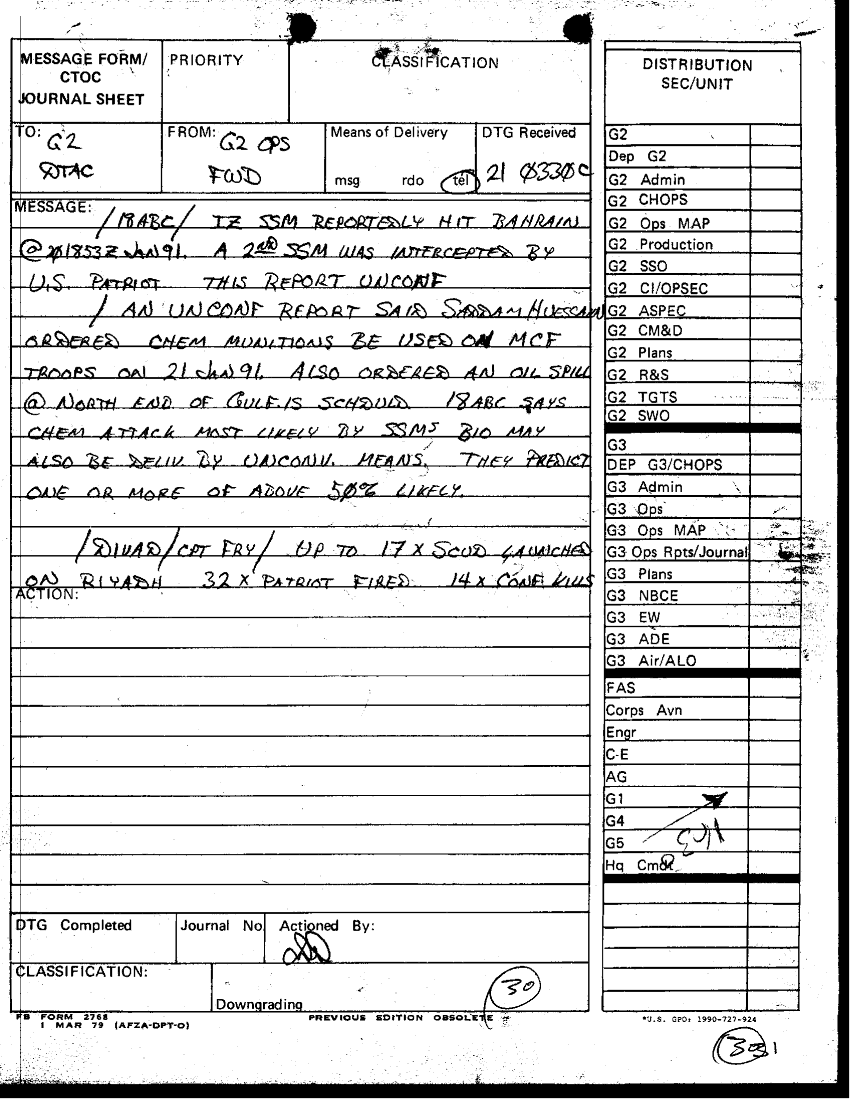 MESSAGE FORM/
CTOC
JOURNAL SHEET
PRIORITY
CLASSIFICATION
TO: G2
DTAC
FROM: G2 OPS
FWD
Means of Delivery
msg rdo tel
DTG Received
21 0330C
MESSAGE:
/18ABC/ IZ SSM REPORTEDLY HIT BAHRAIN
@201853Z JAN91. A 2ND SSM WAS INTERCEPTED BY
U.S. PATRIOT THIS REPORT UNCONF
/ AN UNCONF REPORT SAID SADDAM HUESSAIN
ORDERED CHEM MUNITIONS BE USED ON MCF
TROOPS ON 21 JAN 91. ALSO ORDERED AN OIL SPILL
@ NORTH END OF GULF.IS SCHEDULD 18ABC SAYS
CHEM ATTACK MOST LIKELY BY SSMS BIO MAY
ALSO BE DELIV. BY UNCONV. MEANS. THEY PREDICT
ONE OR MORE OF ABOVE 50% LIKELY.
/DIVAD/CPT FRY/ UP TO 17 X SCUD LAUNCHED
ON RIYADH 32 X PATRIOT FIRED 14 X CONF KILLS
ACTION:
DTG Completed
Journal No.
Actioned By:
CLASSIFICATION:
Downgrading
30
FB FORM 2768
1 MAR 79 (AFZA-DPT-O)
PREVIOUS EDITION OBSOLETE
DISTRIBUTION
SEC/UNIT
G2
Dep G2
G2 Admin
G2 CHOPS
G2 Ops MAP
G2 Production
G2 SSO
G2 CI/OPSEC
G2 ASPEC
G2 CM&D
G2 Plans
G2 R&S
G2 TGTS
G2 SWO
G3
DEP G3/CHOPS
G3 Admin
G3 Ops
G3 Ops MAP
G3 Ops Rpts/Journal
G3 Plans
G3 NBCE
G3 EW
G3 ADE
G3 Air/ALO
FAS
Corps Avn
Engr
C-E
AG
G1
G4
G5
Hq Cmdt
*U.S. GPO: 1990-727-924